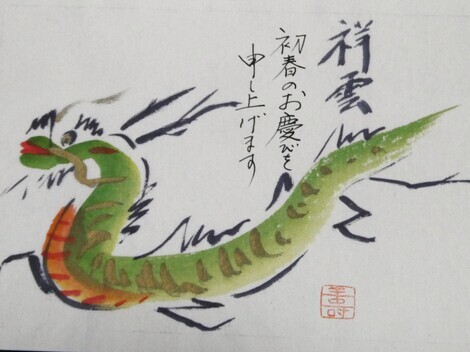 祥雲
初春のお慶びを
申し上げます